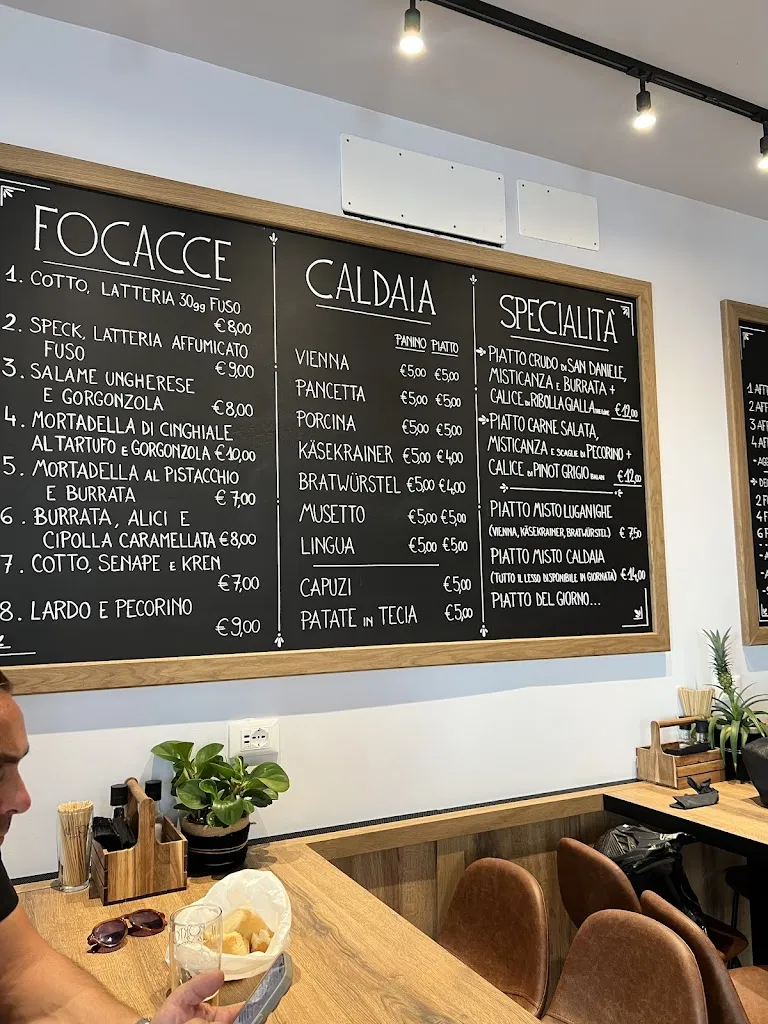 FOCACCE
1. COTTO, LATTERIA 30gg FUSO
€8,00
2. SPECK, LATTERIA AFFUMICATO
FUSO
€9,00
3. SALAME UNGHERESE
E GORGONZOLA €8,00
4. MORTADELLA DI CINGHIALE
AL TARTUFO E GORGONZOLA €10,00
5. MORTADELLA AL PISTACCHIO
E BURRATA €7,00
6. BURRATA, ALICI E
CIPOLLA CARAMELLATA €8,00
7. COTTO, SENAPE E KREN
€7,00
8. LARDO E PECORINO
€9,00
CALDAIA
PANINO PIATTO
VIENNA €5,00 €5,00
PANCETTA €5,00 €5,00
PORCINA €5,00 €5,00
KÄSEKRAINER €5,00 €4,00
BRATWÜRSTEL €5,00 €4,00
MUSETTO €5,00 €5,00
LINGUA €5,00 €5,00
CAPUZI €5,00
PATATE IN TECIA €5,00
SPECIALITÀ
PIATTO CRUDO DI SAN DANIELE,
MISTICANZA E BURRATA +
CALICE DI RIBOLLA GIALLA €12,00
PIATTO CARNE SALATA,
MISTICANZA E SCAGLIE DI PECORINO +
CALICE DI PINOT GRIGIO €12,00
PIATTO MISTO LUGANIGHE
(VIENNA, KÄSEKRAINER, BRATWÜRSTEL) €7,50
PIATTO MISTO CALDAIA
(TUTTO IL LESSO DISPONIBILE IN GIORNATA) €14,00
PIATTO DEL GIORNO...